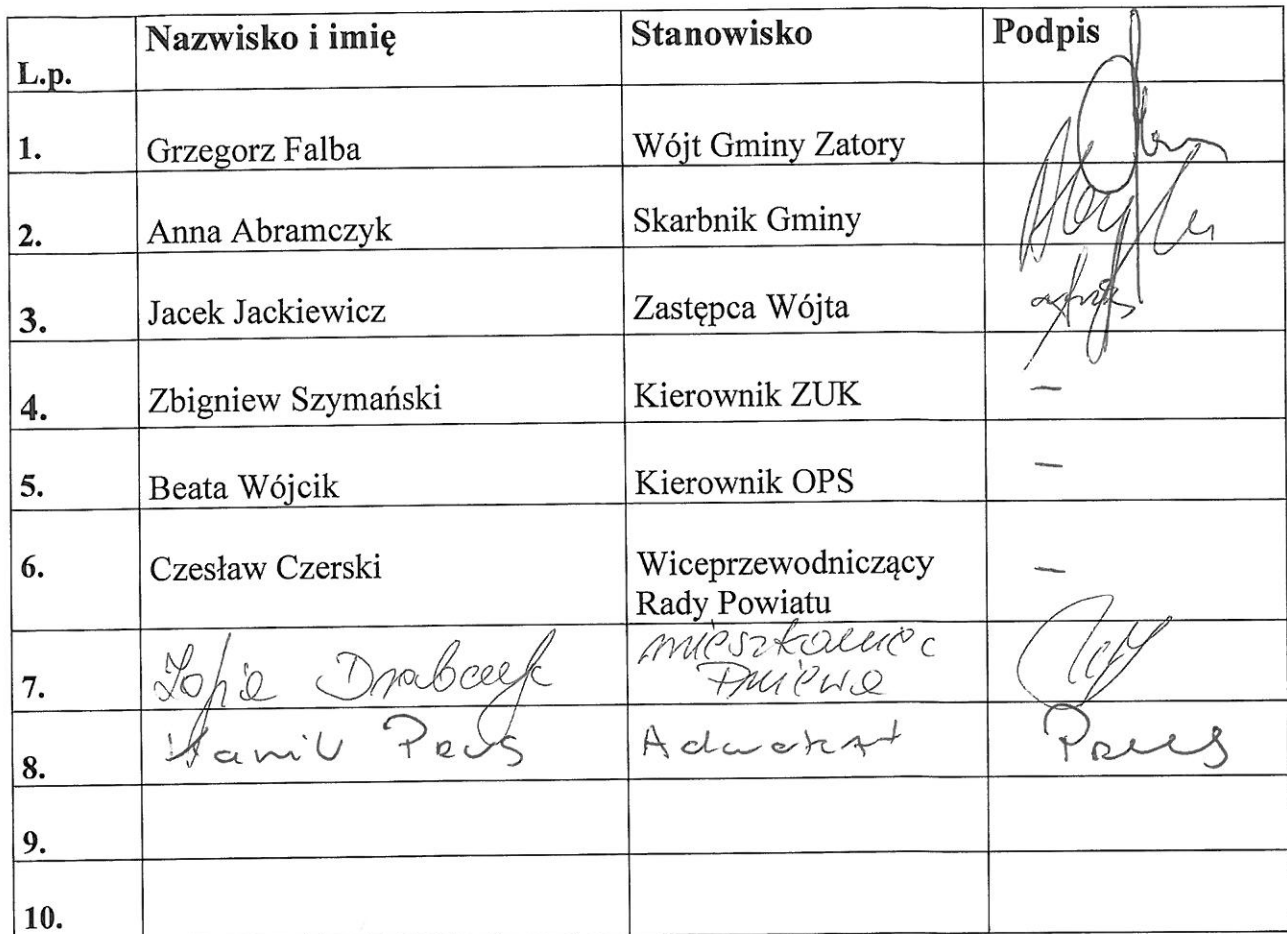 L.p. Nazwisko i imię Stanowisko Podpis
1. Grzegorz Falba Wójt Gminy Zatory
2. Anna Abramczyk Skarbnik Gminy
3. Jacek Jackiewicz Zastępca Wójta
4. Zbigniew Szymański Kierownik ZUK –
5. Beata Wójcik Kierownik OPS –
6. Czesław Czerski Wiceprzewodniczący –
Rady Powiatu
7. Zofia Drabczyk mieszkaniec
Pniewa
8. Kamil Prus Adwokat Prus
9.
10.